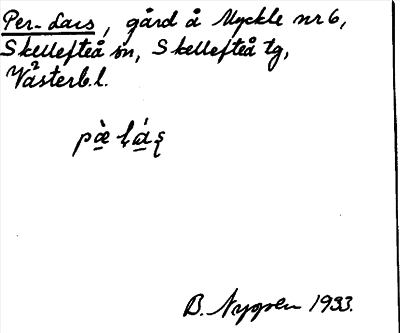 Per-Lars, gård å Myckle nr 6,
Skellefteå sn, Skellefteå tg,
Västerb. l.
B. Nygren 1933.